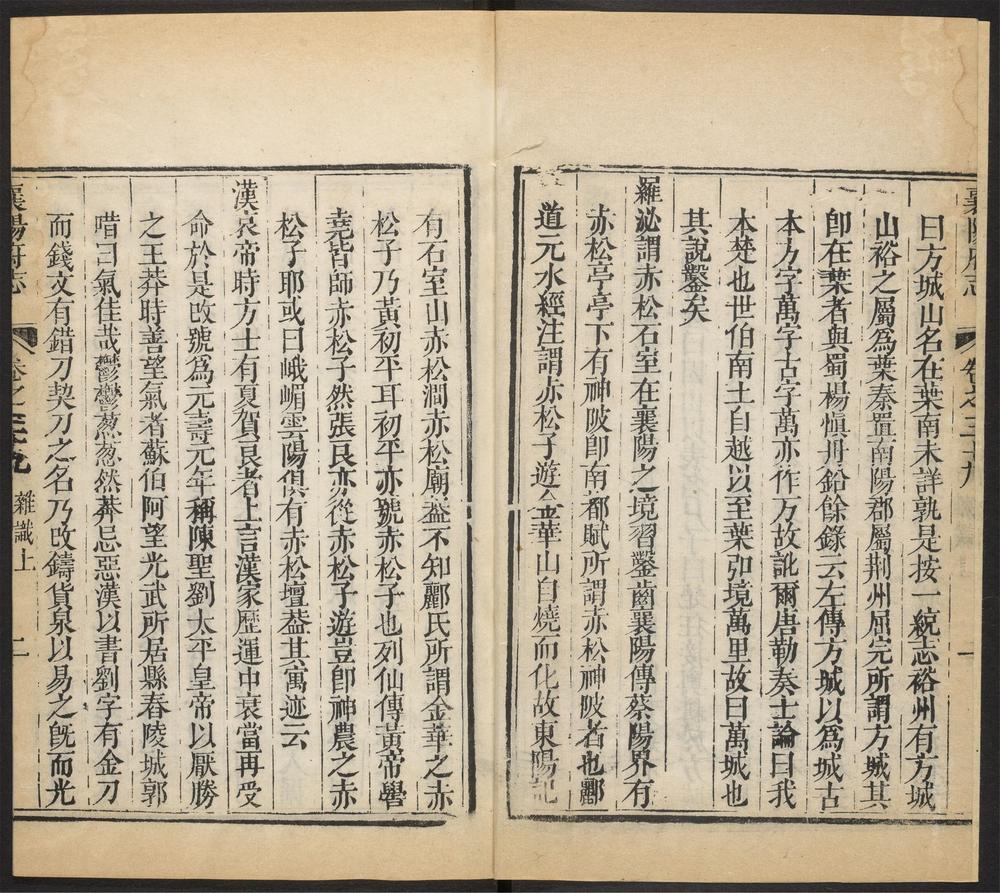 襄陽府志 卷之三十九 一
曰方城山名在葉南未詳孰是按一統志裕州有方城
山裕之屬爲葉秦置南陽郡屬荆州屈完所謂方城其
卽在葉者與蜀楊愼丹鉛餘錄云左傳方城以爲城古
本方字萬字古字萬亦作万故訛爾唐勒奏士論曰我
本楚也世伯南土自越以至葉弥境萬里故曰萬城也
其說鑿矣
羅泌謂赤松石室在襄陽之境習鑿齒襄陽傳蔡陽界有
赤松亭亭下有神陂卽南都賦所謂赤松神陂者也酈
道元水經注謂赤松子遊金華山自燒而化故東陽記
有石室山赤松澗赤松廟葢不知酈氏所謂金華之赤
松子乃黃初平耳初平亦號赤松子也列仙傳黃帝嚳
堯皆師赤松子然張良亦從赤松子遊豈卽神農之赤
松子耶或曰峨嵋雲陽俱有赤松壇葢其寓迹云
漢哀帝時方士有夏賀良者上言漢家歷運中衰當再受
命於是改號爲元壽元年稱陳聖劉太平皇帝以厭勝
之王莽時善望氣者蘇伯阿望光武所居縣舂陵城郭
唶曰氣佳哉鬱鬱葱葱然莾忌惡漢以書劉字有金刀
而錢文有錯刀契刀之名乃改鑄貨泉以易之旣而光
襄陽府志 卷之三十九 雜識上 二